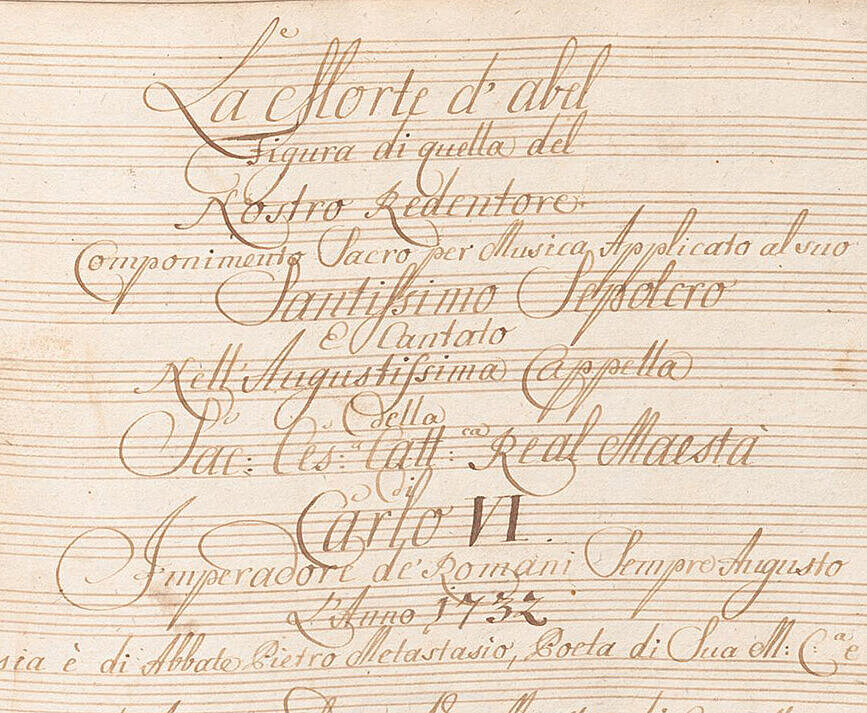 La Morte d' abel
Figura di quella del
Nostro Redentore.
Componimento Sacro per Musica Applicato al suo
Santissimo Sepolcro
E Cantato
Nell' Augustissima Cappella
della
Sac: Ces:a Catt:ca Real Maestà
di
Carlo VI.
Imperadore de' Romani Sempre Augusto
L'Anno 1732
sia è di Abbate Pietro Metastasio, Poeta di Sua M: C:a e